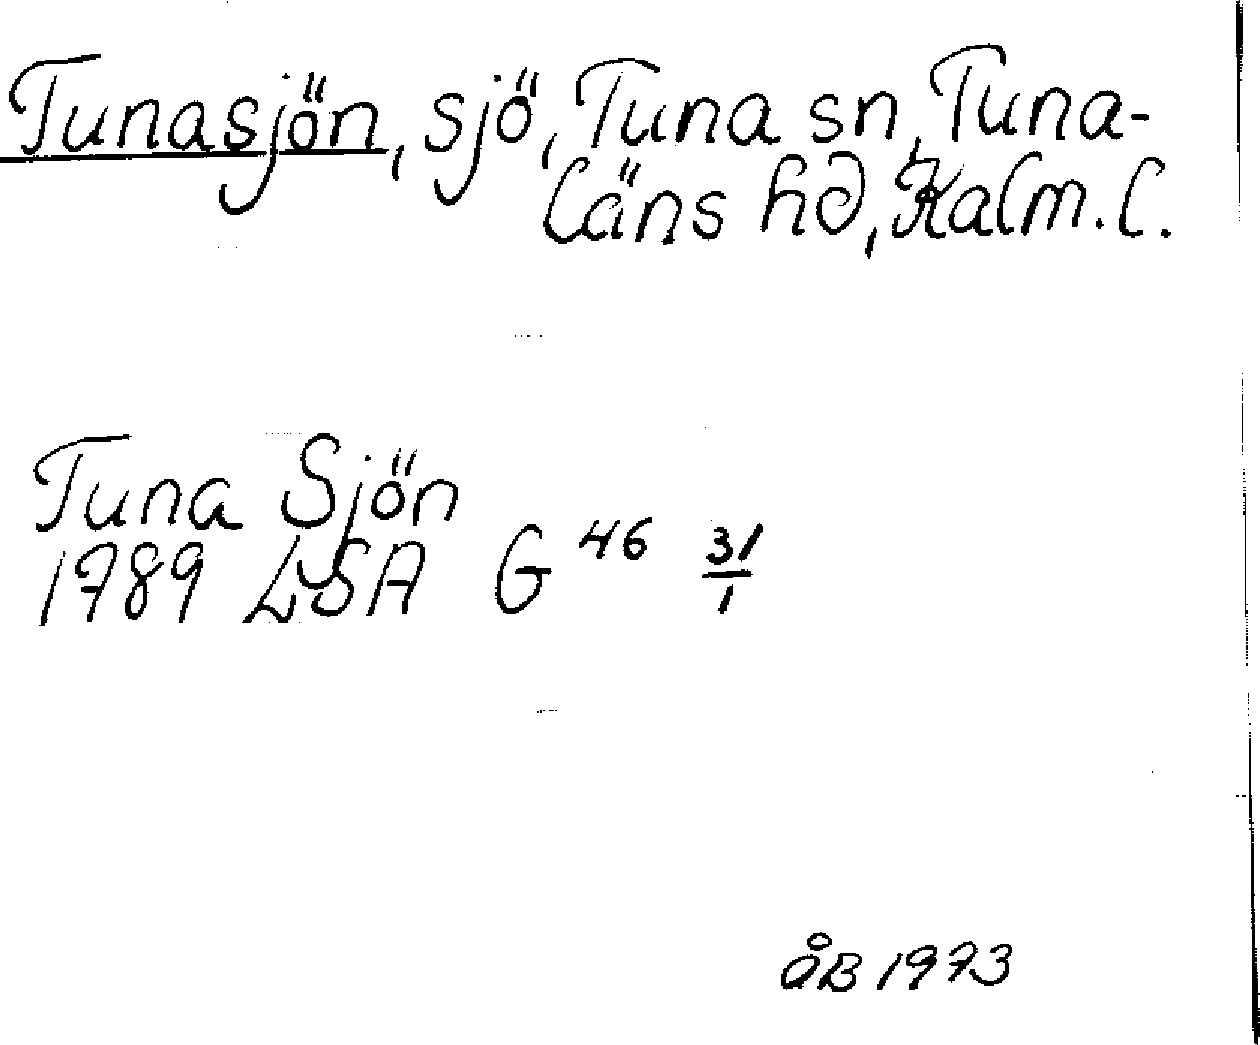 Tunasjön, sjö, Tuna sn, Tuna-
läns hd, Kalm. l.
Tuna Sjön
1789 LSA G 46 31/1
åB 1973